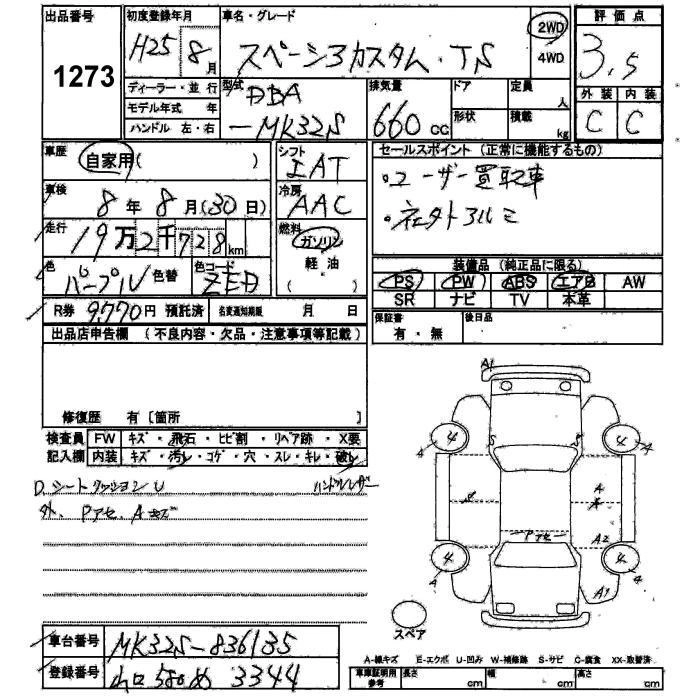 出品番号
1273
初度登録年月
H25 8月
車名・グレード
スペーシアカスタム・TS
2WD
4WD
評価点
3.5
外装 内装
C C
ディーラー・並行
モデル年式 年
ハンドル 左・右
型式
DBA
-MK32S
排気量
660cc
ドア
形状
定員
人
積載
kg
車歴
自家用( )
シフト
IAT
セールスポイント (正常に機能するもの)
・ユーザー買取車
・社外アルミ
車検
8年8月(30日)
冷房
AAC
走行
19万2千728km
燃料
ガソリン
軽油
( )
色
パープル 色替
色コード
ZED
装備品 (純正品に限る)
PS PW ABS エアB AW
SR ナビ TV 本革
R券 9,770円 預託済 名変通知期限 月 日
保証書
有・無
後日品
出品店申告欄 (不良内容・欠品・注意事項等記載)
修復歴 有 [箇所 ]
検査員
記入欄
FW キズ・飛石・ヒビ割・リペア跡・X要
内装 キズ・汚レ・コゲ・穴・スレ・キレ・破レ
D.シートクッションU ハンドルレザー
外、Pアセ、Aキズ
A1
S S
4 4
4 4
A
A
Pアセ
A2
4 4
4 4
A1
スペア
車台番号
MK32S-836135
登録番号
山口 580 め 3344
A-線キズ E-エクボ U-凹み W-補修跡 S-サビ C-腐食 XX-取替済
車庫証明用
参考
長さ cm 幅 cm 高さ cm